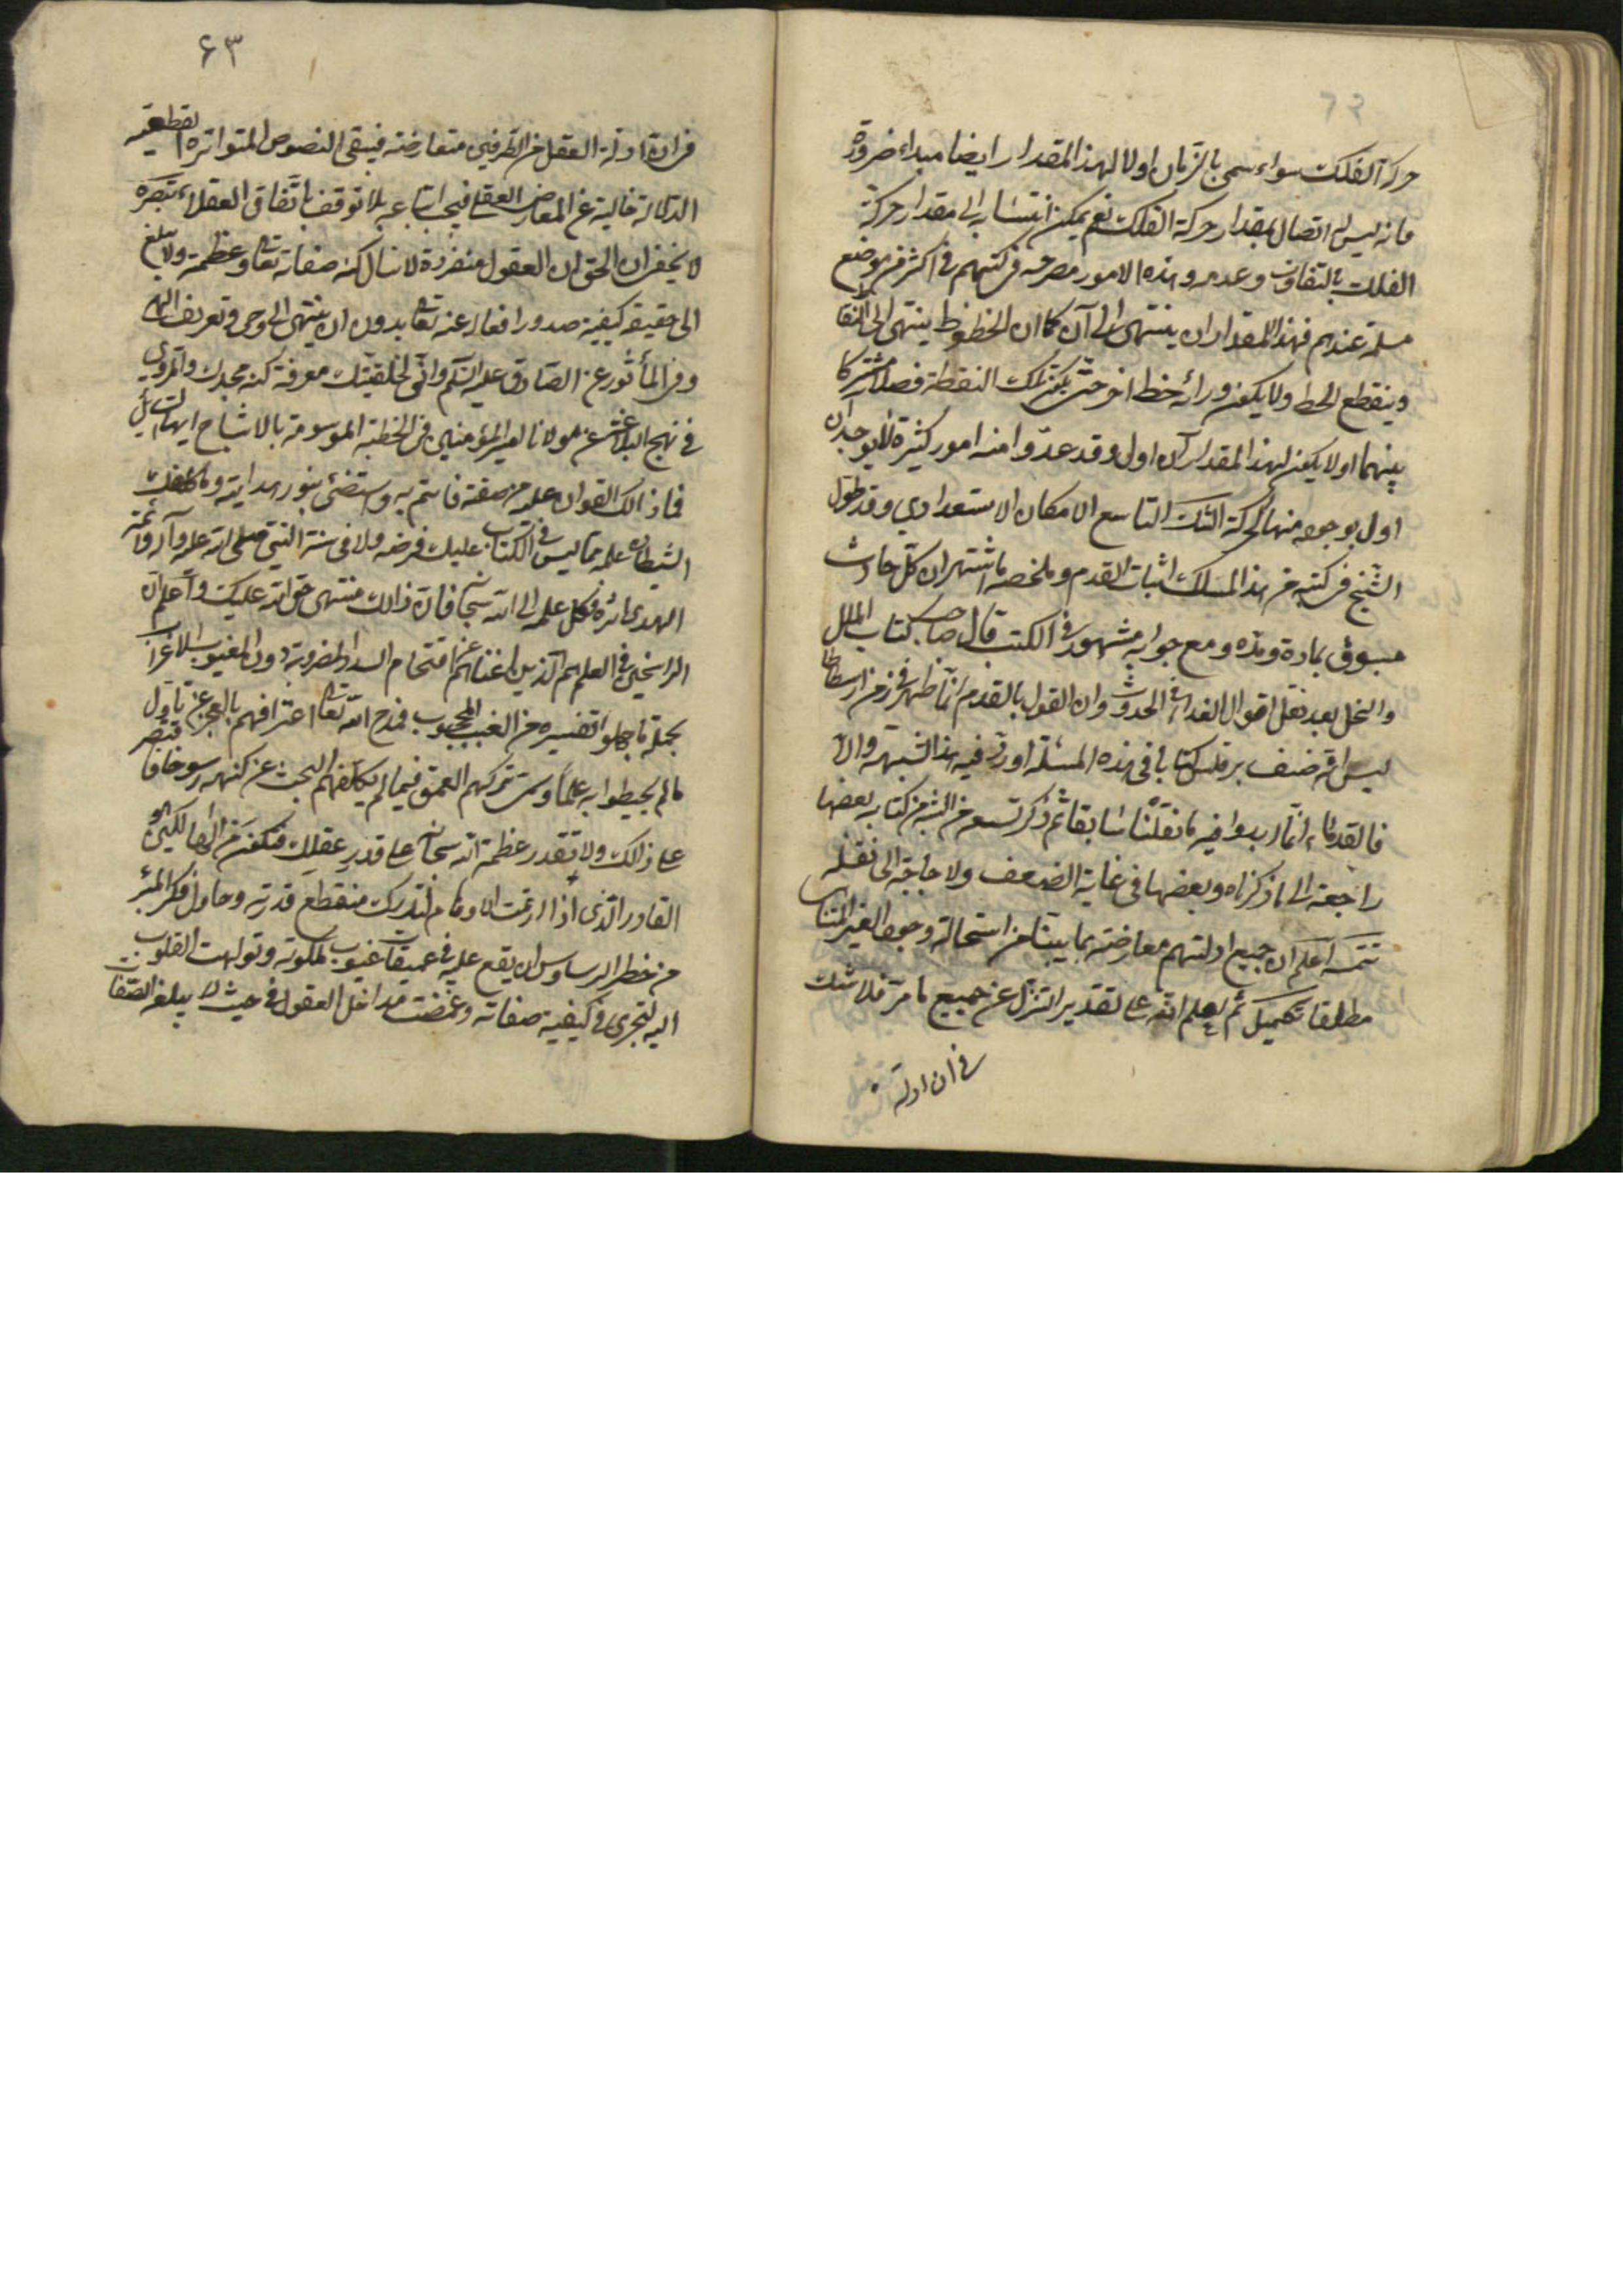 حركة الفلك سواء سمى بالزمان اولا لهذا المقدار ايضا مبداء ضرورة
فانه ليس له اتصال بمقدار حركة الفلك نعم يمكن انتسابه الى مقدار حركة
الفلك بالتفاوت وعدمه وهذه الامور مصرحه فى كتبهم فى اكثر من موضع
مسلمة عندهم فهذا المقدار ان ينتهى الى آن كما ان الخطوط ينتهى الى النقا
وينقطع الخط ولا يكون ورائه خط اخر حتى يكون تلك النقطة فصلا مشتركا
بينهما اولا يكون لهذا المقدار آن اول وقد عدوا منه امور كثيرة لا يوجد ان
اول بوجوده منها الحركة الفلك التاسع الامكان الاستعدادي وقد طول
الشيخ فى كتبه من هذا المسلك اثبات القدم وملخصه ما اشتهر ان كل حادث
مسبوق بمادة ومدة ومع جوابه مشهور فى الكتب قال صاحب كتاب الملل
والنحل بعد نقل اقوال القدماء فى الحدوث وان القول بالقدم انما ظهر فى زمن ارسطاطا
ليس انه صنف برقلس كتابا فى هذه المسئلة اورد فيه هذا الشبهة والا
فالقدماء انما ابدوا فيه ما نقلنا سابقا ثم ذكر تسع من الشبه من كتابه بعضها
راجعة الى ما ذكرناه وبعضها فى غاية الضعف ولا حاجة الى نقله
تتمه اعلم ان جميع ادلتهم معارضة بما بينا من استحالة وجود الغير المتناهى
مطلقا تكميل ثم ليعلم انه على تقدير التنزل عن جميع ما مر فلا شك
فى ان ادلة
۶۳
فى ان ادلة العقل من الطرفين متعارضة فيبقى النصوص المتواترة القطعية
الدلالة خالية عن المعارض العقلى فيجب اتباعه بلا توقف باتفاق العقلاء تبصره
لا يخفى ان الحق ان العقول منفردة لا تنال كنه صفاته تعالى وعظمته ولا تبلغ
الى حقيقة كيفية صدور افعاله عنه تعالى بدون ان ينتهى الى وحى وتعريف الهى
وفى المأثور عن الصادق عليه السلم وانى لخلقتك معرفة كنه مجدك والمروي
فى نهج البلاغة عن مولانا امير المؤمنين فى الخطبة الموسومة بالاشباح ايها السائل
فما ذلك القران عليه من صفته فائتم به واستضئ بنور هدايته وما كلفك
الشيطان علمه مما ليس فى الكتاب عليك فرضه ولا فى سنة النبى صلى الله عليه وآله وائمة
الهدى اثره فكل علمه الى الله سبحانه فان ذالك منتهى حق الله عليك واعلم ان
الراسخين فى العلم هم الذين اغناهم عن اقتحام السدد المضروبة دون الغيوب الاقرار
بجملة ما جهلوا تفسيره من الغيب المحجوب فمدح الله تعالى اعترافهم بالعجز عن تناول
مالم يحيطوا به علما وسمى تركهم التعمق فيما لم يكلفهم البحث عن كنهه رسوخا فاقتصر
على ذالك ولا تقدر عظمة الله سبحانه على قدر عقلك فتكون من الهالكين هو
القادر الذى اذا ارتمت الاوهام لتدرك منقطع قدرته وحاول فكر المبرء
من خطر الوساوس ان يقع عليه فى عميقات غيوب ملكوته وتولهت القلوب
اليه لتجرى فى كيفية صفاته وغمضت مداخل العقول فى حيث لا يبلغه الصفات